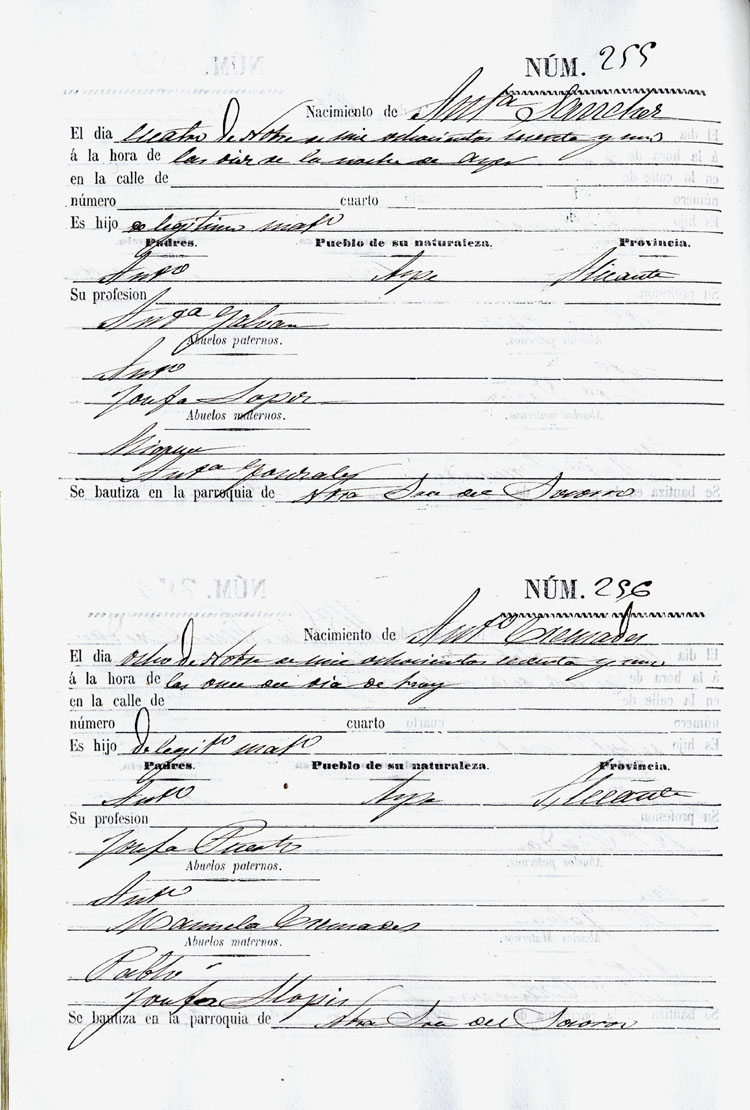 NÚM. 255
Nacimiento de Antª Sanchez
El dia cuatro de Nbre de mil ochocientos sesenta y uno
á la hora de las diez de la noche de ayer
en la calle de
número cuarto
Es hijo de legitimo matº
Padres. Pueblo de su naturaleza. Provincia.
Antº Aspe Alicante
Su profesion
Antª Galvañ
Abuelos paternos.
Antº
Josefa Soper
Abuelos maternos.
Miguel
Antª Gonzalez
Se bautiza en la parroquia de Ntra Sra del Socorro
NÚM. 256
Nacimiento de Antº Cremades
El dia ocho de Nbre de mil ochocientos sesenta y uno
á la hora de las once del dia de hoy
en la calle de
número cuarto
Es hijo de legitº matº
Padres. Pueblo de su naturaleza. Provincia.
Antº Aspe Alicante
Su profesion
Josefa Puerto
Abuelos paternos.
Antº
Manuela Cremades
Abuelos maternos.
Pablo
Josefa Llopis
Se bautiza en la parroquia de Ntra Sra del Socorro